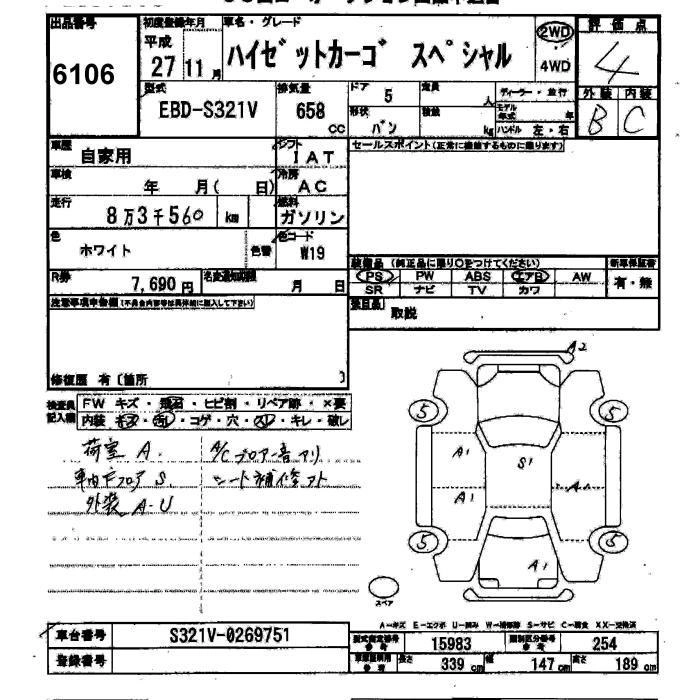 出品番号
6106
初度登録年月
平成
27 11 月
車名・グレード
ハイゼットカーゴ スペシャル
2WD
4WD
評価点
4
外装 内装
B C
型式
EBD-S321V
排気量
658
cc
ドア
5
定員
人
形状
バン
積載
kg
ディーラー・並行
モデル年式
年
ハンドル 左・右
車歴
自家用
シフト
IAT
車検
年 月( 日)
冷房
AC
走行
8万3千560 km
燃料
ガソリン
色
ホワイト
色替
色コード
W19
R券
7,690円
名変通知期限
月 日
セールスポイント(正常に機能するものに限ります)
装備品 (純正品に限り○をつけてください)
新車保証書
PS PW ABS エアB AW
SR ナビ TV カワ
有・無
取説
注意事項申告欄(不具合内容等は具体的に記入して下さい)
修復歴 有〔箇所 〕
検査員記入欄
FW キズ・飛石・ヒビ割・リペア跡・×要
内装 キズ・汚れ・コゲ・穴・スレ・キレ・破レ
荷室 A.
A/C ブロアー音アリ
車内フロア S.
シート補修アト
外装 A-U
A2
5
5
A1
S1
A1
A1
5
5
A1
スペア
A-キズ E-エクボ U-凹み W-補修跡 S-サビ C-腐食 XX-交換済
車台番号
S321V-0269751
登録番号
型式指定番号 参考
15983
類別区分番号 参考
254
車両規格用 参考
長さ 339 cm
幅 147 cm
高さ 189 cm